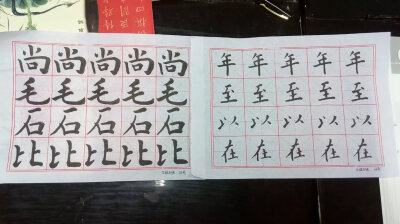 尚尚尚尚尚
毛毛毛毛毛
石石石石石
比比比比比
年年年年年
至至至至至
以以以以以
在在在在在